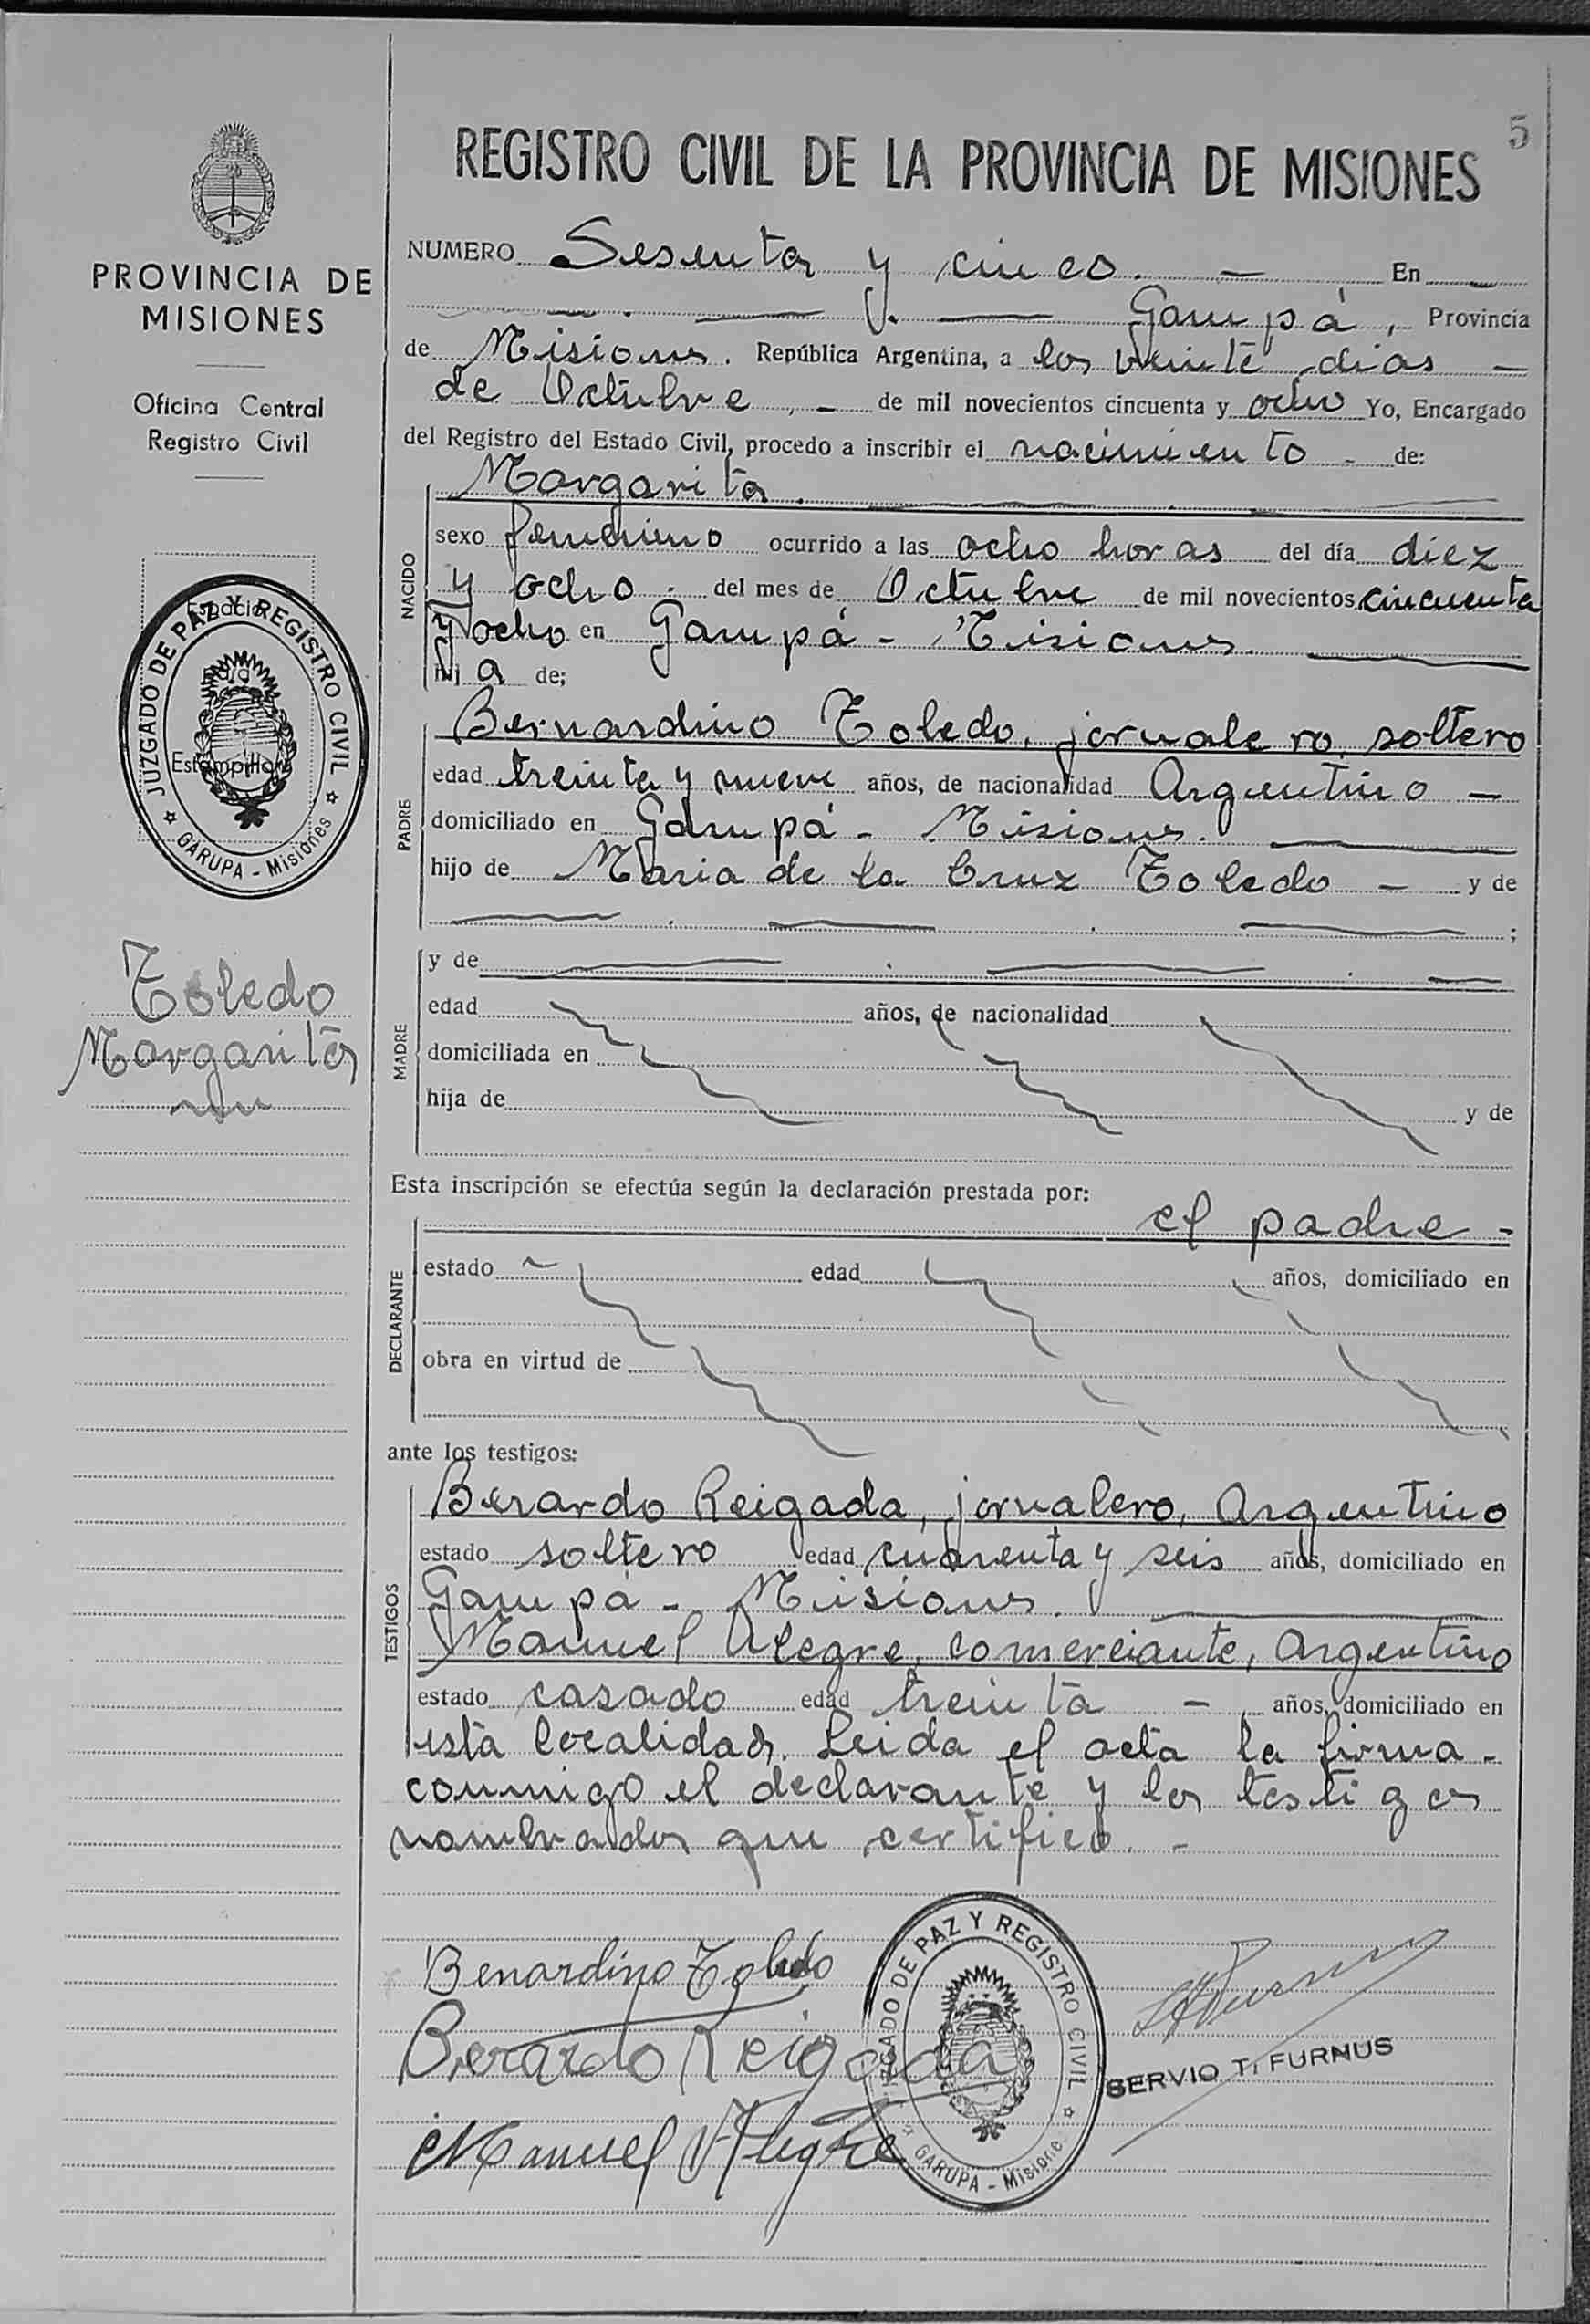 5
REGISTRO CIVIL DE LA PROVINCIA DE MISIONES
PROVINCIA DE
MISIONES
Oficina Central
Registro Civil
Espacio
para
Estampillar
JUZGADO DE PAZ Y REGISTRO CIVIL
GARUPA - Misiones
Toledo
Margarita
NUMERO Sesenta y cinco. — En —
— . — y. — Garupá, Provincia
de Misiones. República Argentina, a los veinte dias —
de Octubre, - de mil novecientos cincuenta y ocho Yo, Encargado
del Registro del Estado Civil, procedo a inscribir el nacimiento - de:
NACIDO
Margarita.
sexo femenino ocurrido a las ocho horas del día diez
y ocho. del mes de Octubre de mil novecientos cincuenta
y ocho en Garupá - Misiones.
hij a de;
PADRE
Bernardino Toledo, jornalero, soltero
edad treinta y nueve años, de nacionalidad Argentino —
domiciliado en Garupá - Misiones.
hijo de Maria de la Cruz Toledo — y de
;
MADRE
y de
edad años, de nacionalidad
domiciliada en
hija de y de
Esta inscripción se efectúa según la declaración prestada por:
el padre -
DECLARANTE
estado edad años, domiciliado en
obra en virtud de
ante los testigos:
TESTIGOS
Berardo Reigada, jornalero, Argentino
estado soltero edad cuarenta y seis años, domiciliado en
Garupá - Misiones.
Manuel Alegre, comerciante, Argentino
estado casado edad treinta — años, domiciliado en
esta localidad. Leida el acta la firma -
conmigo el declarante y los testigos
nombrados que certifico. -
Benardino Toledo
Berardo Reigada
Manuel Alegre
JUZGADO DE PAZ Y REGISTRO CIVIL
GARUPA - Misione
SERVIO T. FURNUS